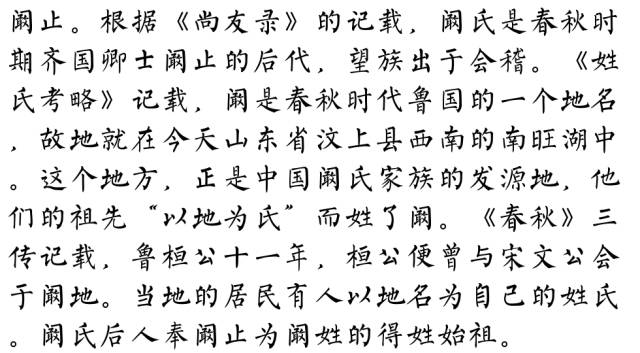 阚止。根据《尚友录》的记载，阚氏是春秋时
期齐国卿士阚止的后代，望族出于会稽。《姓
氏考略》记载，阚是春秋时代鲁国的一个地名
，故地就在今天山东省汶上县西南的南旺湖中
。这个地方，正是中国阚氏家族的发源地，他
们的祖先“以地为氏”而姓了阚。《春秋》三
传记载，鲁桓公十一年，桓公便曾与宋文公会
于阚地。当地的居民有人以地名为自己的姓氏
。阚氏后人奉阚止为阚姓的得姓始祖。